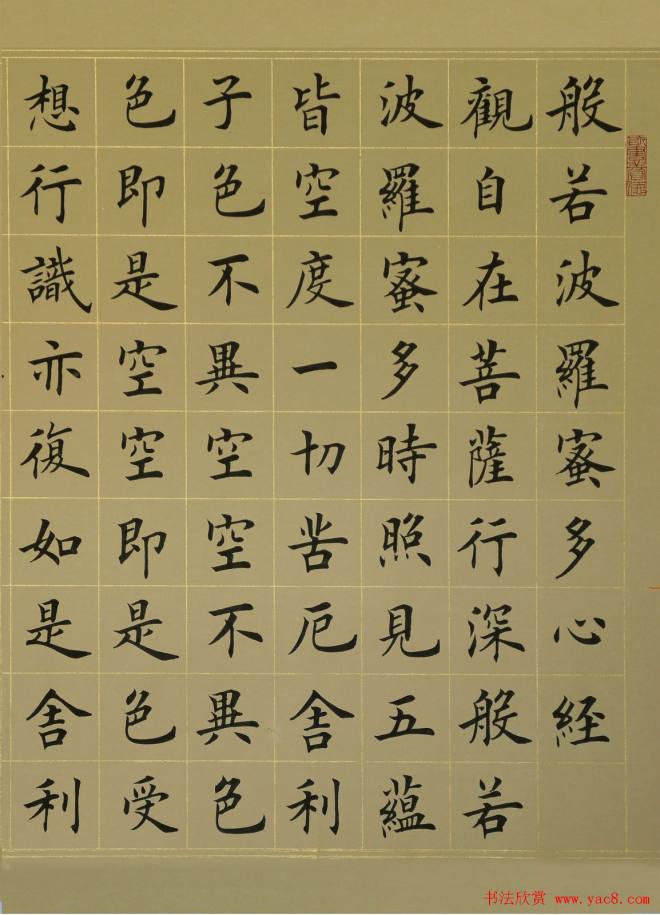 般若波羅蜜多心経
觀自在菩薩行深般若
波羅蜜多時照見五蘊
皆空度一切苦厄舎利
子色不異空空不異色
色即是空空即是色受
想行識亦復如是舎利
书法欣赏 www.yac8.com